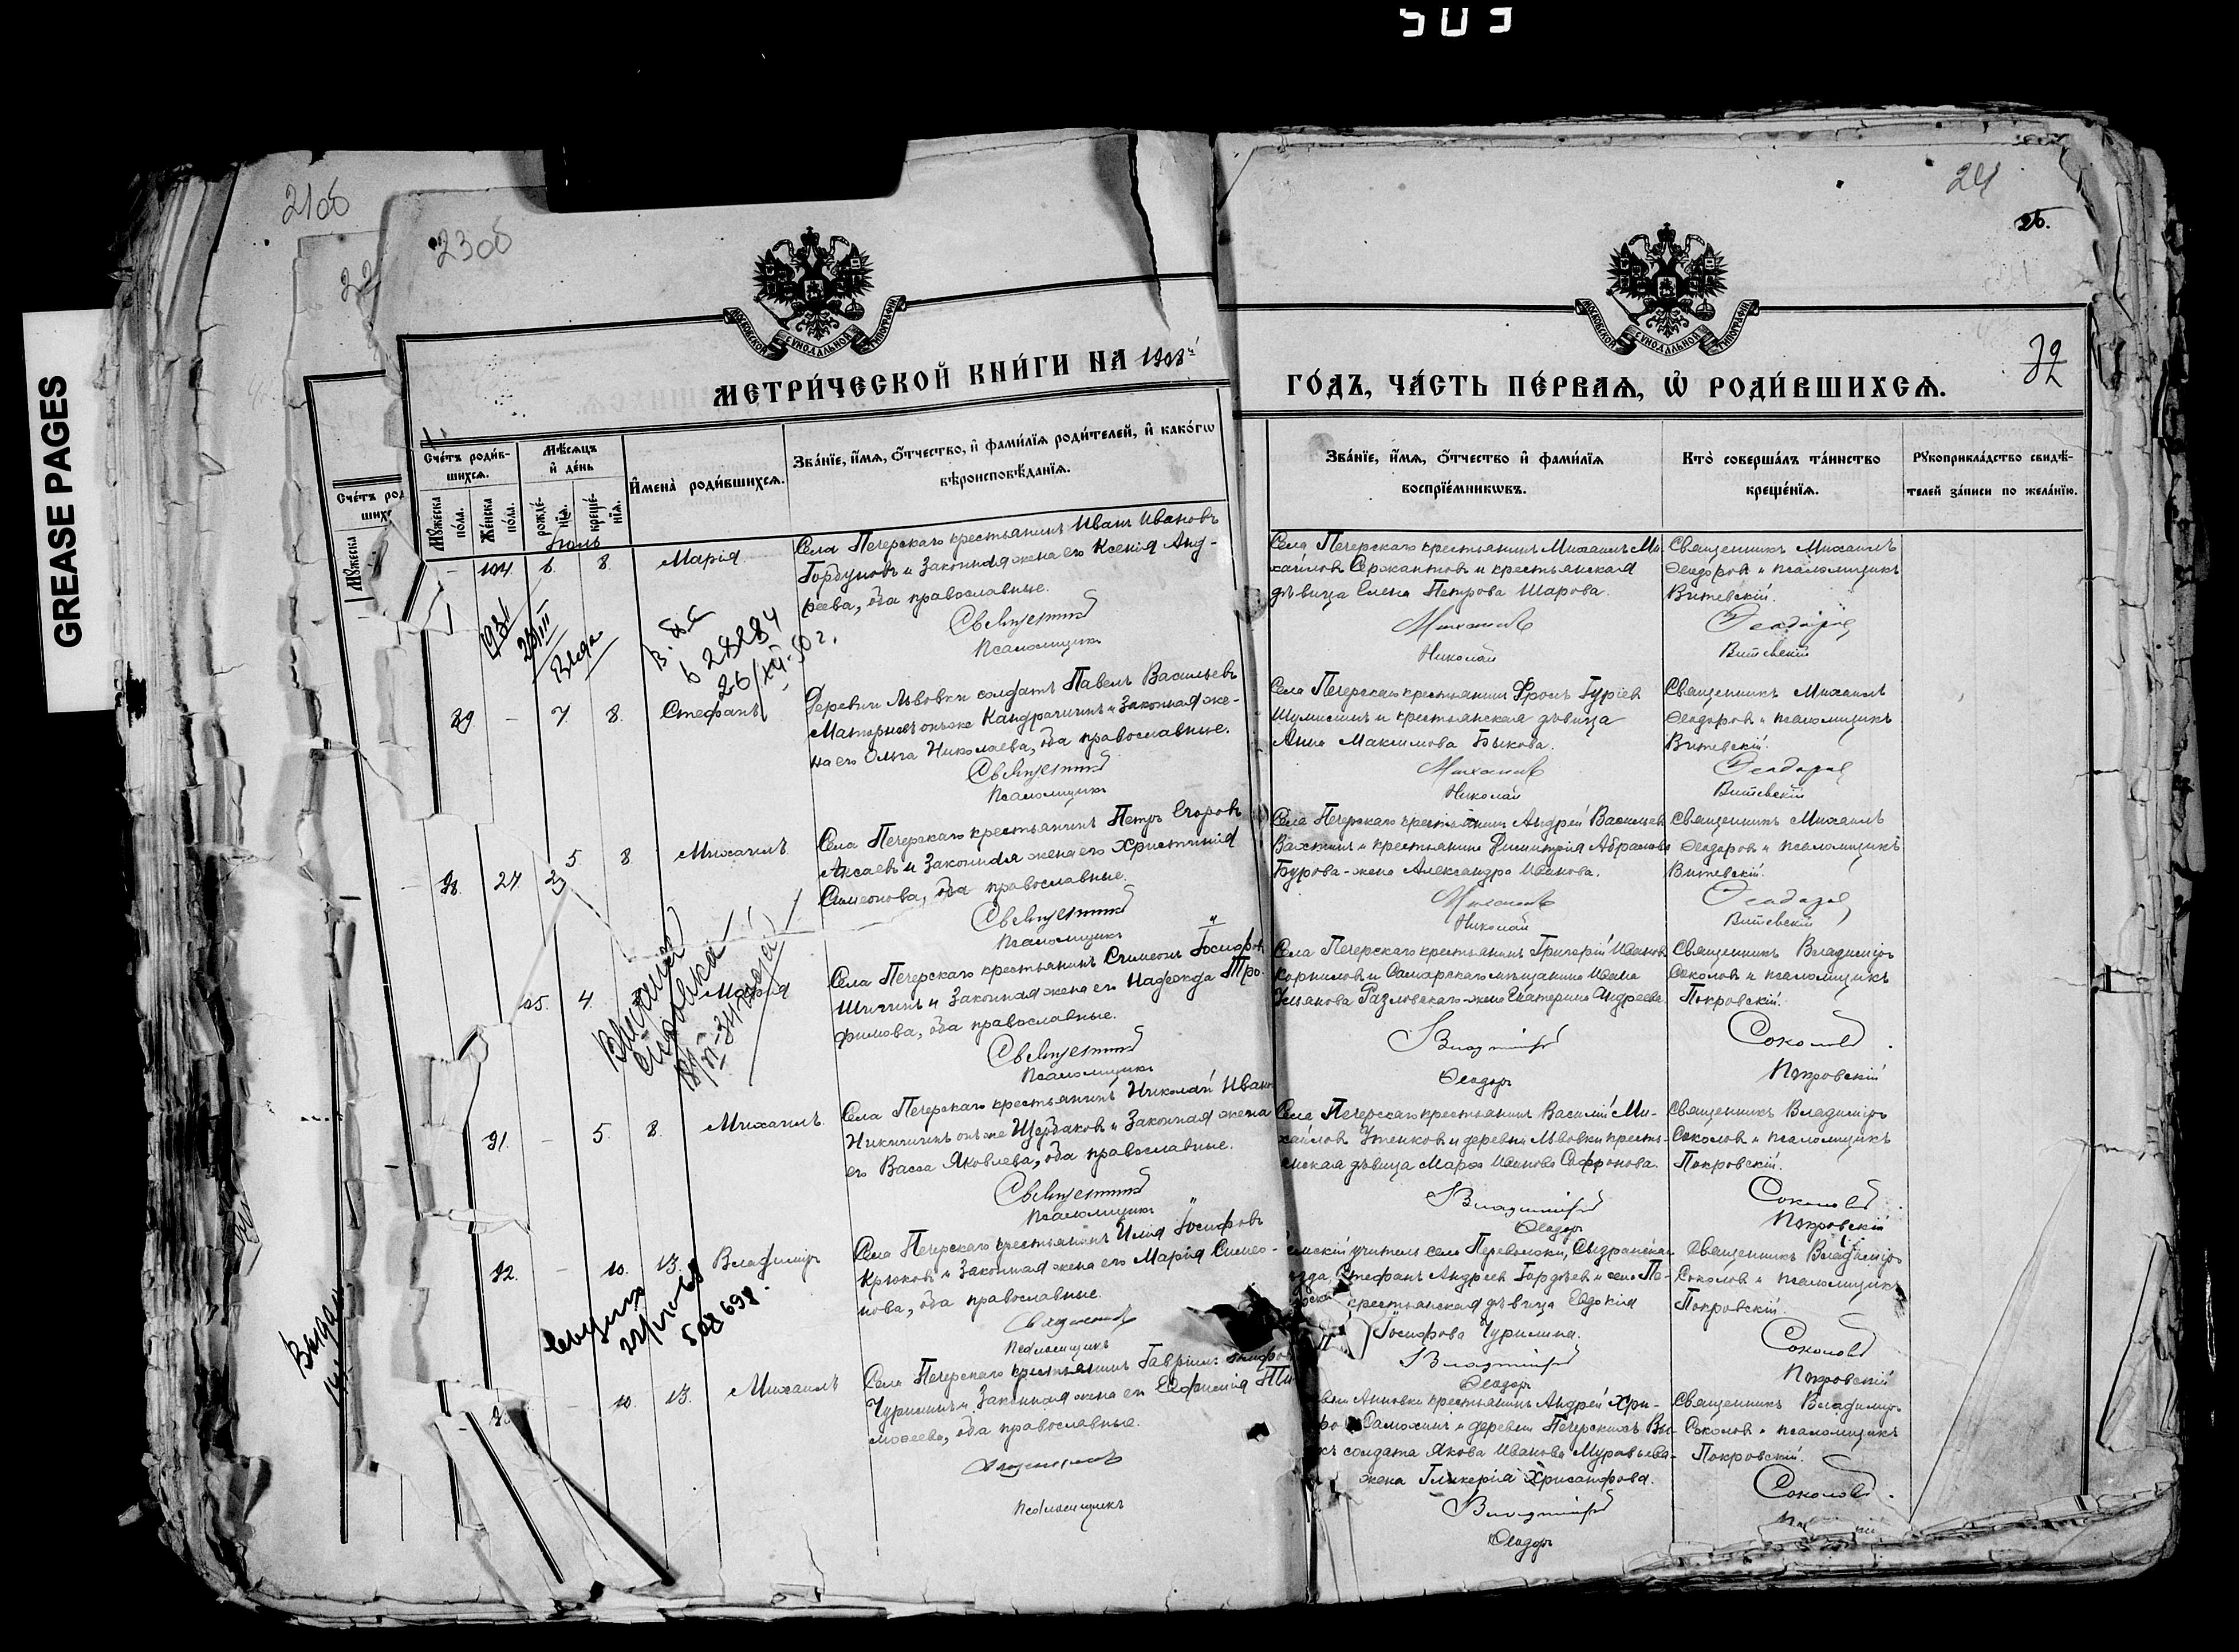 503
GREASE PAGES
21об
23об
24
26.
32
МОСКОВСКОЙ СѴНОДАЛЬНОЙ ТИПОГРАФІИ
МОСКОВСКОЙ СѴНОДАЛЬНОЙ ТИПОГРАФІИ
МЕТРИ́ЧЕСКОЙ КНИ́ГИ НА 1908й
ГО́ДЪ, ЧА́СТЬ ПЕ́РВАѦ, Ѡ҆ РОДИ́ВШИХСѦ.
Сче́тъ роди́в-
шихсѧ.
Мꙋжеска по́ла.
Же́нска по́ла.
Мѣ́сѧцъ
и҆ де́нь
рожде́-нїѧ.
креще́-нїѧ.
И҆мена̀ роди́вшихсѧ.
Зва́нїе, и҆́мѧ, ѻ҆́тчество, и҆ фами́лїѧ роди́телей, и҆ како́гѡ
вѣроисповѣ́данїѧ.
Зва́нїе, и҆́мѧ, ѻ҆́тчество и҆ фами́лїѧ
воспрїе́мникѡвъ.
Кто̀ соверша́лъ та́инство
креще́нїѧ.
Рꙋкоприкла́дство свидѣ́-
телей за́писи по жела́нїю.
Іюль
104. 6. 8. Марія
Села Печерскаго крестьянинъ Иванъ Ивановъ
Горбуновъ и законная жена его Ксенія Анд-
реева, оба православные.
Священникъ
Псаломщикъ
Села Печерскаго крестьянинъ Михаилъ Ми-
хайловъ Сержантовъ и крестьянская
дѣвица Елена Петрова Шарова.
Михаилъ
Николай
Священникъ Михаилъ
Ѳеодоровъ и псаломщикъ
Витевскій.
Ѳеодоровъ
Витевскій
628284
26/XII-50г.
89 - 7. 8. Стефанъ
Деревни Львовки солдатъ Павелъ Васильевъ
онъ же Кандрачинъ и законная же-
на его Ольга Николаева, оба православные.
Священникъ
Псаломщикъ
Села Печерскаго крестьянинъ Фролъ Гуріевъ
и крестьянская дѣвица
Анна Максимова Быкова.
Михаилъ
Николай
Священникъ Михаилъ
Ѳеодоровъ и псаломщикъ
Витевскій.
Ѳеодоровъ
Витевскій
5 8. Михаилъ
Села Печерскаго крестьянинъ Петръ Егоровъ
Аксаевъ и законная жена его Христинія
Симеонова, оба православные.
Священникъ
Псаломщикъ
Села Печерскаго крестьянинъ Андрей Васильевъ
Вахтинъ и крестьянина Димитрія Абрамова
Бурова-жена Александра Иванова.
Михаилъ
Николай
Священникъ Михаилъ
Ѳеодоровъ и псаломщикъ
Витевскій.
Ѳеодоровъ
Витевскій
4. Марія
Села Печерскаго крестьянинъ Симеонъ Іосифовъ
и законная жена его Надежда Тро-
фимова, оба православные.
Священникъ
Псаломщикъ
Села Печерскаго крестьянинъ Григорій Ивановъ
Корниловъ и Самарскаго мѣщанина Ивана
Ульянова Разловскаго-жена Екатерина Андреева
Владиміръ
Ѳеодоръ
Священникъ Владиміръ
Соколовъ и псаломщикъ
Покровскій.
Соколовъ
Покровскій
91. - 5. 8. Михаилъ.
Села Печерскаго крестьянинъ Николай Иванов
Никитинъ онъ же Щербаковъ и законная жена
его Васса Яковлева, оба православные.
Священникъ
Псаломщикъ
Села Печерскаго крестьянинъ Василій Ми-
хайловъ Утенковъ и деревни Львовки кресть-
янская дѣвица Марѳа Иванова Софронова.
Владиміръ
Ѳеодоръ
Священникъ Владиміръ
Соколовъ и псаломщикъ
Покровскій.
Соколовъ
Покровскій
92. - 10. 13. Владиміръ
Села Печерскаго крестьянинъ Илія Іосифовъ
Крюковъ и законная жена его Марія Симео-
нова, оба православные.
Священникъ
Псаломщикъ
учитель села Переволоки, Сызранскаго
Стефанъ Андреевъ Гордѣевъ и села Пе-
крестьянская дѣвица Евдокія
Іосифова Чурилина.
Владиміръ
Ѳеодоръ
Священникъ Владиміръ
Соколовъ и псаломщикъ
Покровскій.
Соколовъ
Покровскій
508698.
- 10. 13. Михаилъ
Села Печерскаго крестьянинъ Гавріилъ
Чурилинъ и законная жена его Евфимія Ти-
моѳеева, оба православные.
Священникъ
Псаломщикъ
Анновки крестьянинъ Андрей Хри-
Самохинъ и деревни Печерскихъ Вы-
солдата Якова Иванова Муравьева-
жена Гликерія Хрисанфова.
Владиміръ
Ѳеодоръ
Священникъ Владиміръ
Соколовъ и псаломщикъ
Покровскій.
Соколовъ